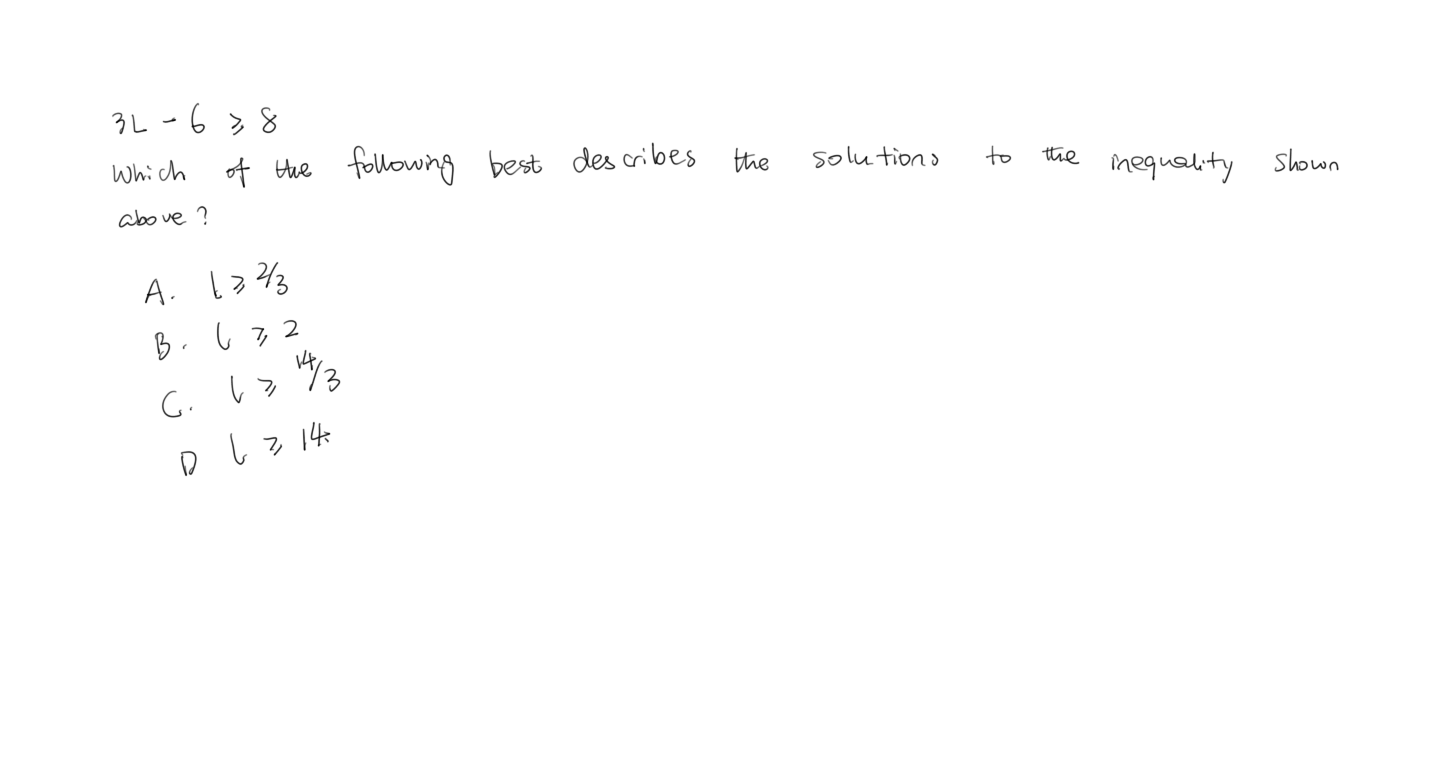 3L - 6 ⩾ 8
Which of the following best describes the solutions to the inequality shown
above?
A. l ⩾ 2/3
B. l ⩾ 2
C. l ⩾ 14/3
D l ⩾ 14